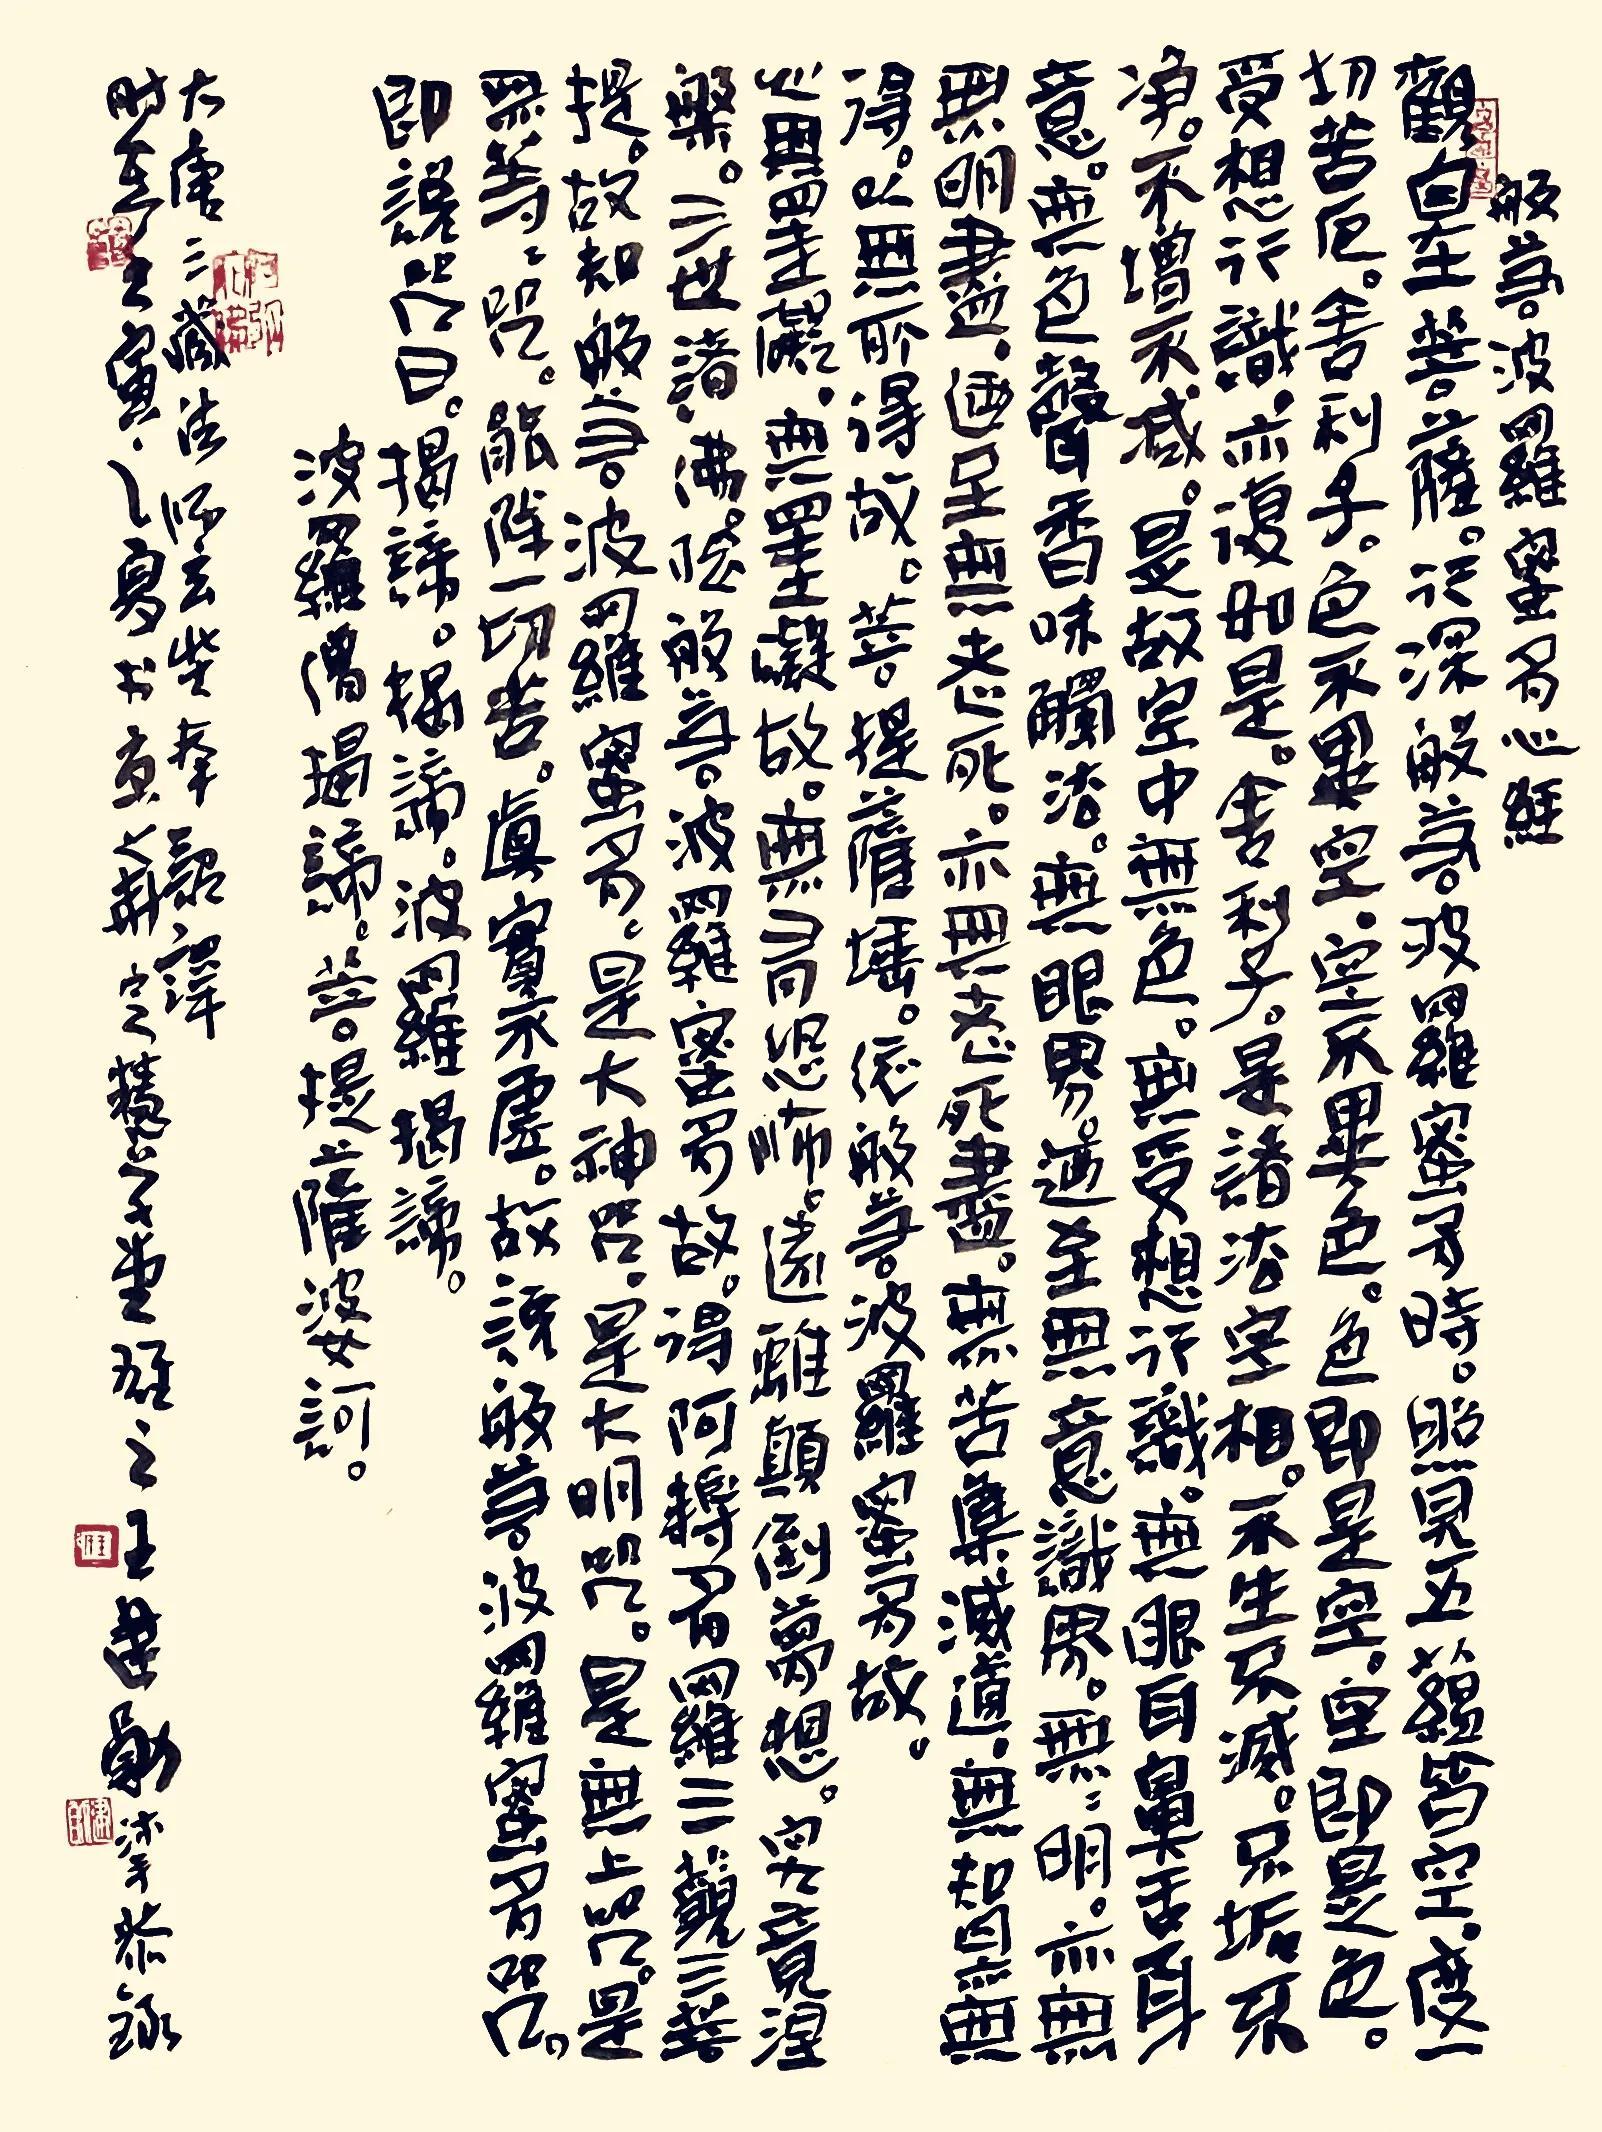 般若波羅蜜多心經
觀自在菩薩。行深般若。波羅蜜多時。照見五蘊皆空。度一
切苦厄。舍利子。色不異空。空不異色。色即是空。空即是色。
受想行識。亦復如是。舍利子。是諸法空相。不生不滅。不垢不
净。不增不减。是故空中無色。無受想行識。無眼耳鼻舌身
意。無色聲香味觸法。無眼界。乃至無意識界。無〻明。亦無
無明盡。乃至無老死。亦無老死盡。無苦集滅道。無知亦無
得。以無所得故。菩提薩埵。依般若波羅蜜多故。
心無罣礙。無罣礙故。無有恐怖。遠離顛倒夢想。究竟涅
槃。三世諸佛。依般若。波羅蜜多故。得阿耨多羅三藐三菩
提。故知般若。波羅蜜多。是大神咒。是大明咒。是無上咒。是
無等〻咒。能除一切苦。真實不虛。故說般若。波羅蜜多咒。
即說咒曰。揭諦。揭諦。波羅揭諦。
波羅僧揭諦。菩提薩婆訶。
大唐三藏法师玄奘奉詔譯
時在壬寅 書於京華 堂 之王建勛 恭錄